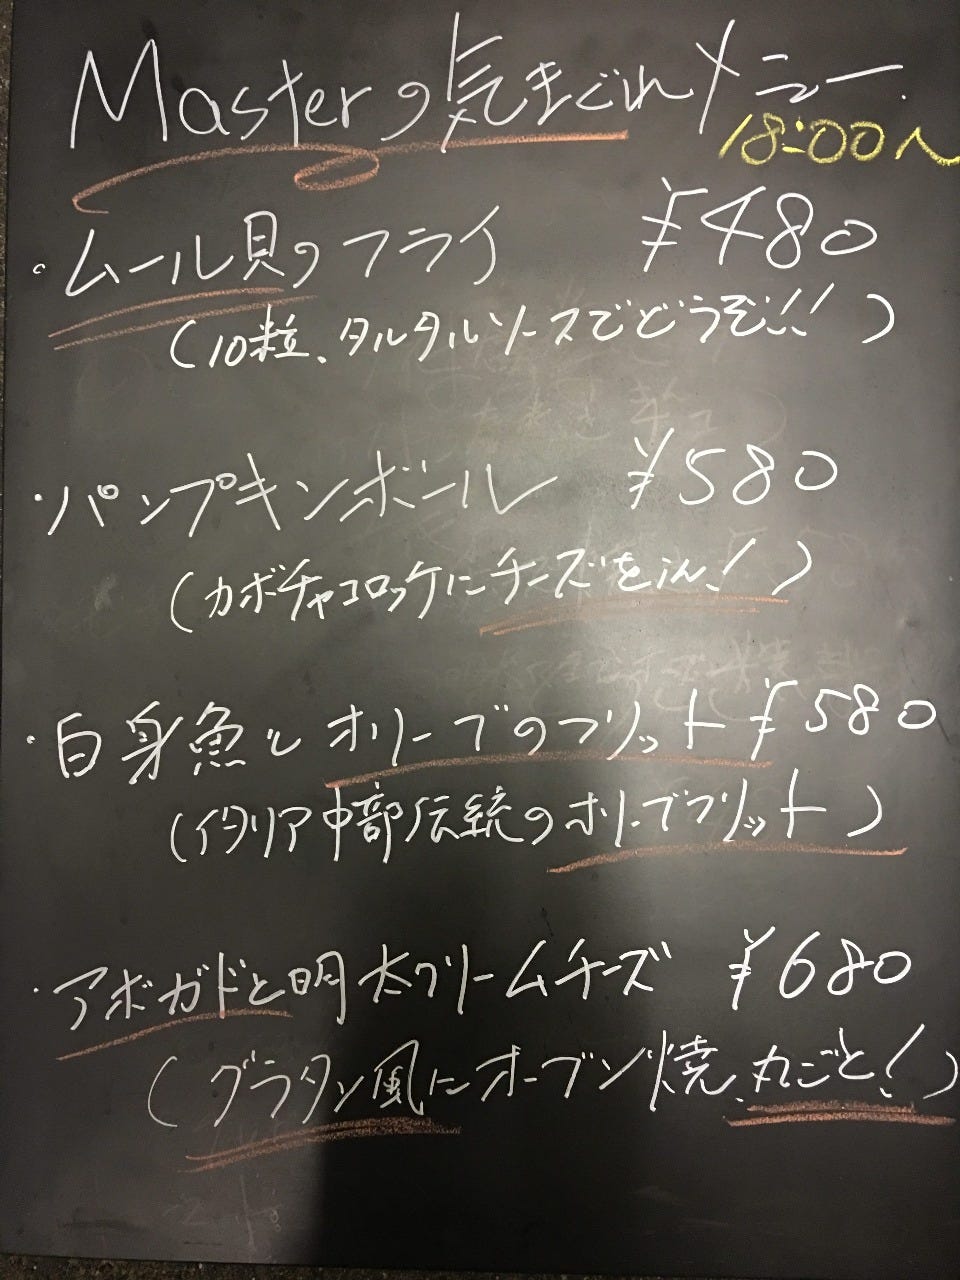 Masterの気まぐれメニュー
18:00〜
・ムール貝のフライ ¥480
(10粒、タルタルソースでどうぞ!!)
・パンプキンボール ¥580
(カボチャコロッケにチーズをin!)
・白身魚とオリーブのフリット ¥580
(イタリア中部伝統のオリーブフリット)
・アボガドと明太クリームチーズ ¥680
(グラタン風にオーブン焼、丸ごと!)